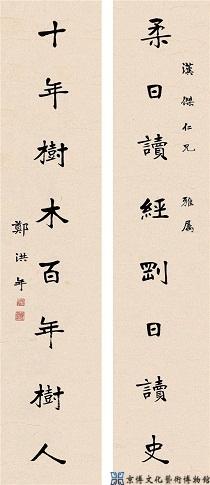 漢傑仁兄 雅属
柔日讀經剛日讀史
十年樹木百年樹人
鄭洪年
京博文化藝術博物館